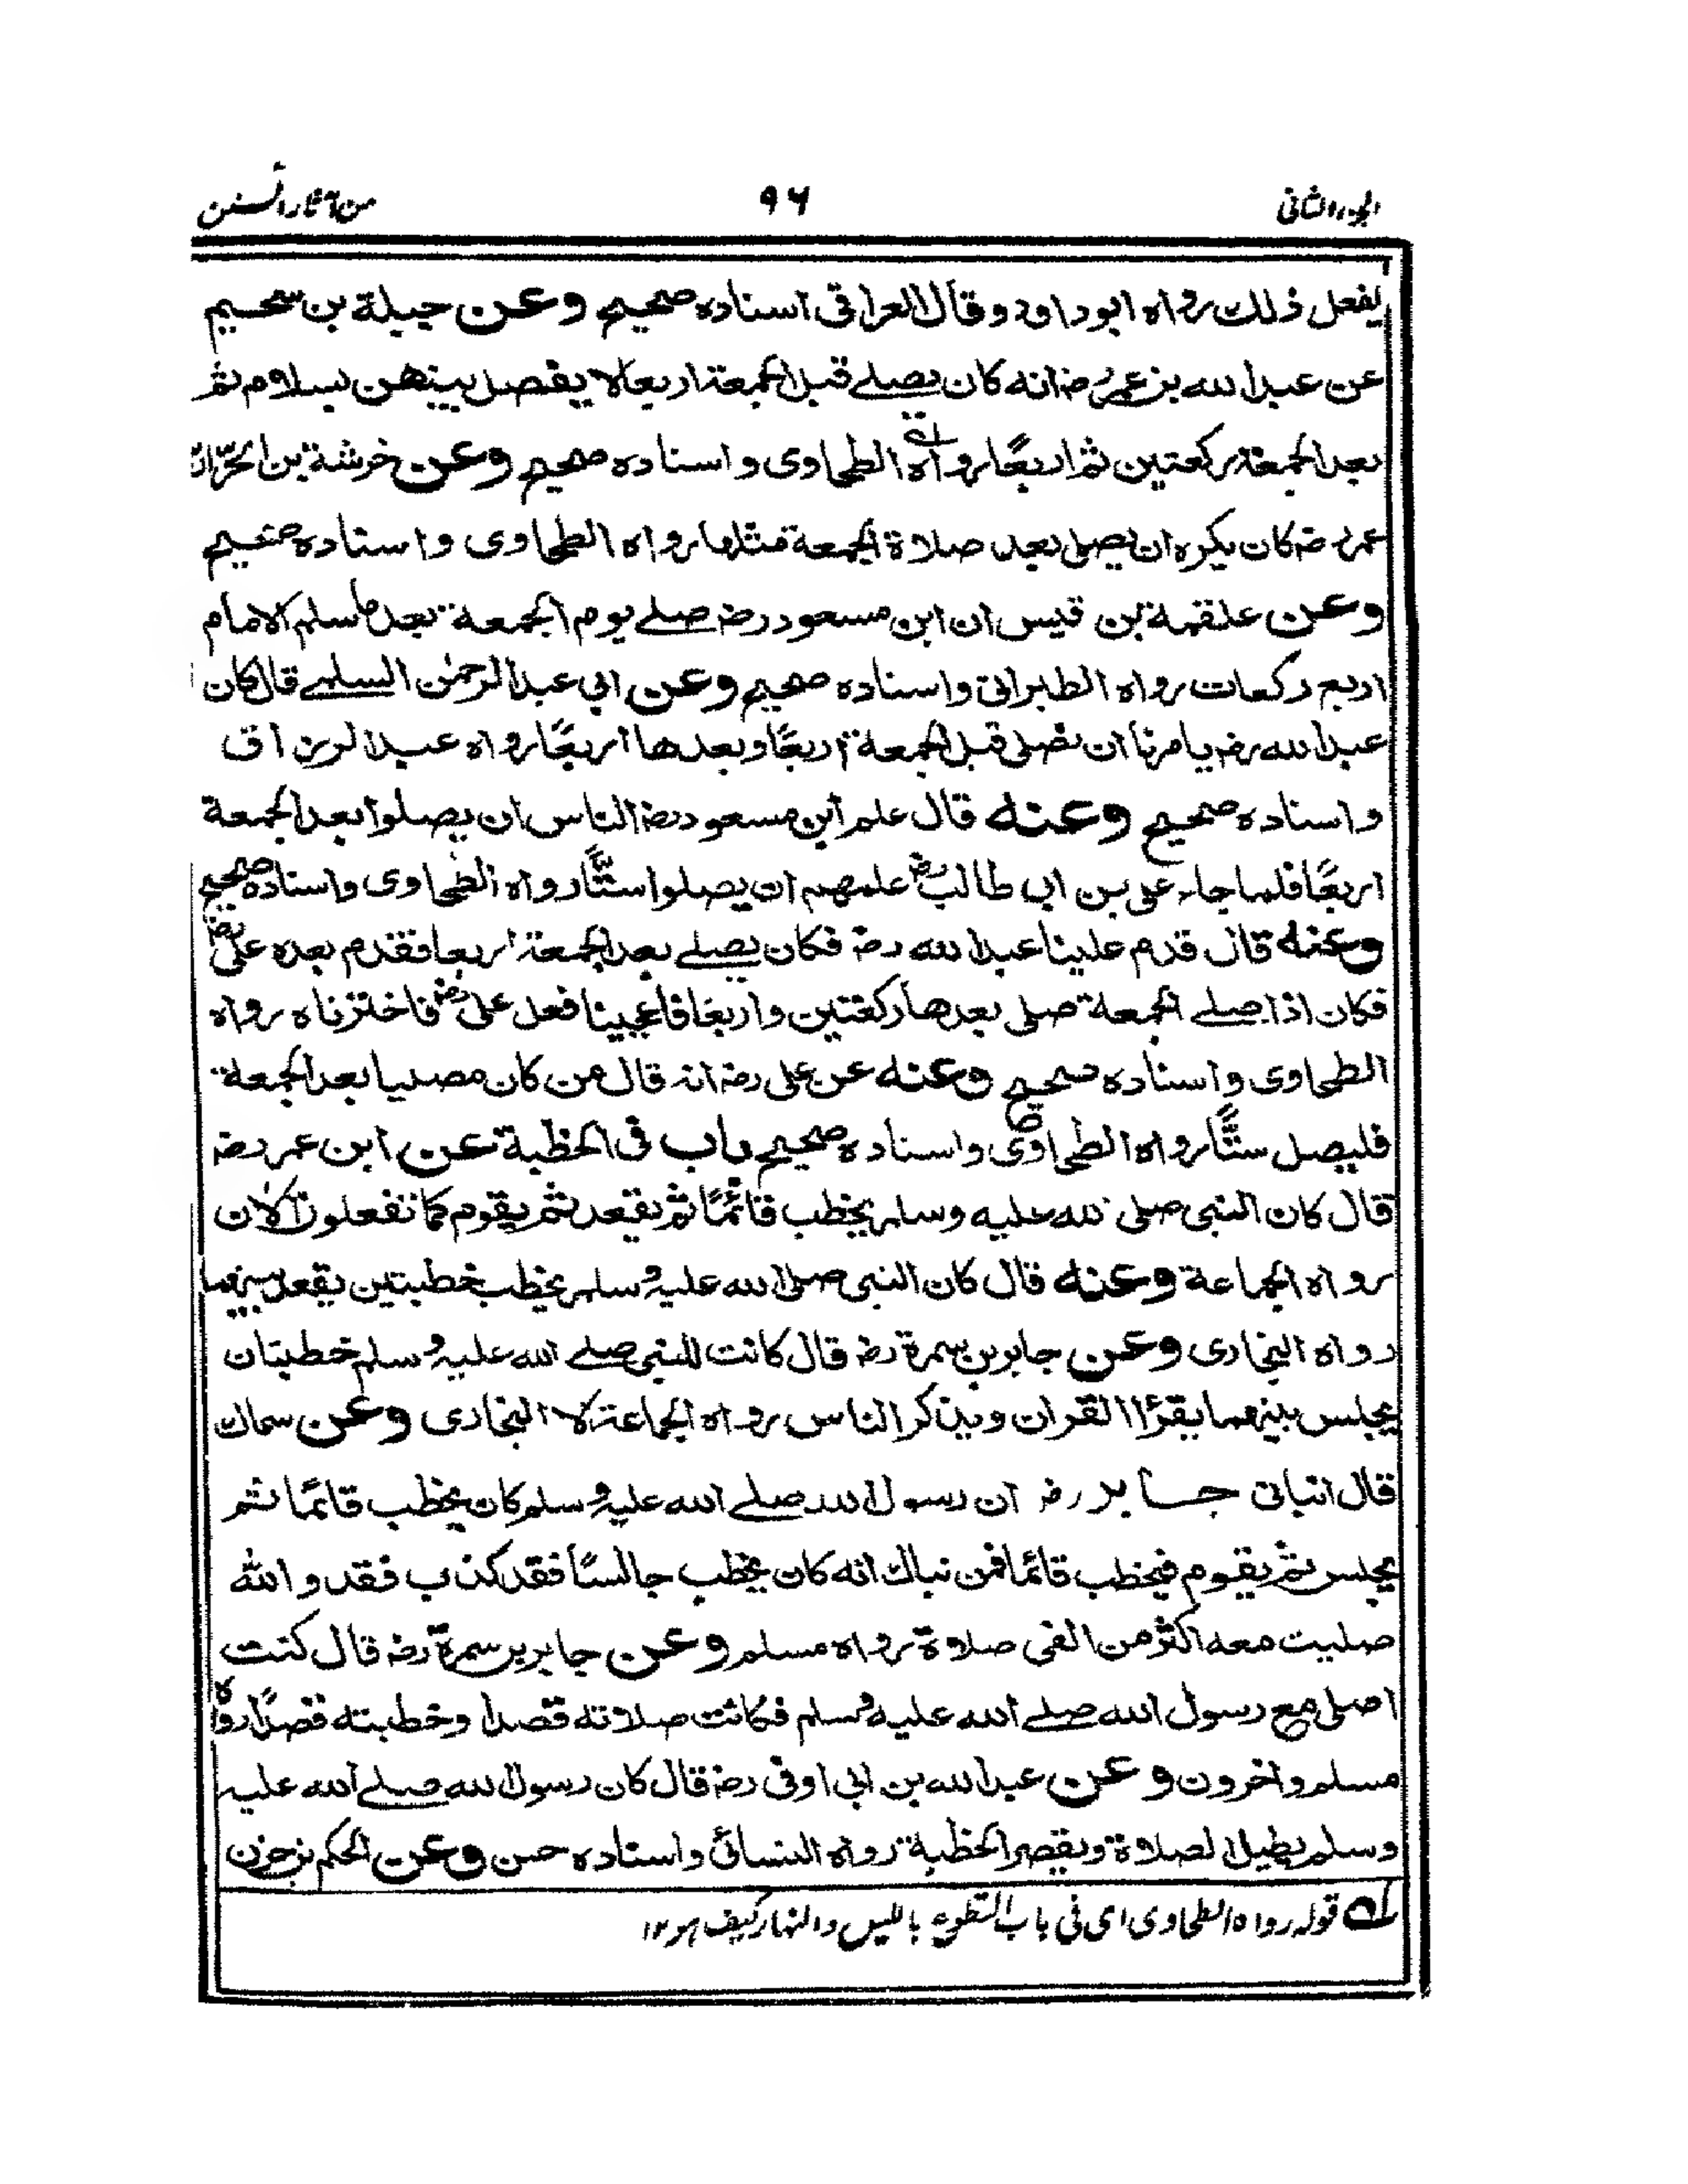 الجزء الثانی
۹۶
من آثار السنن
یفعل ذلك رواه ابوداود وقال العراقی اسناده صحیح وعن جبلة بن سحیم
عن عبدالله بن عمر رضـ انه كان یصلے قبل الجمعة اربعا لا یفصل بینهن بسلام ثم
بعد الجمعة ركعتین ثم اربعًا رواه الطحاوی واسناده صحیح وعن خرشة بن الحرّ ان
عمر رضـ كان یكره ان یصلی بعد صلاة الجمعة مثلها رواه الطحاوی واسناده صحیح
وعن علقمة بن قیس ان ابن مسعود رضـ صلے یوم الجمعة بعد ما سلم الامام
اربع ركعات رواه الطبرانی واسناده صحیح وعن ابی عبدالرحمٰن السلمے قال كان
عبدالله رضـ یامرنا ان نصلی قبل الجمعة اربعًا وبعدها اربعًا رواه عبدالرزاق
واسناده صحیح وعنه قال علم ابن مسعود رضـ الناس ان یصلوا بعد الجمعة
اربعًا فلما جاء علی بن ابی طالب رضـ علمهم ان یصلوا ستًّا رواه الطحاوی واسناده صحیح
وعنه قال قدم علینا عبدالله رضـ فكان یصلے بعد الجمعة اربعا فقدم بعده علی رضـ
فكان اذا صلے الجمعة صلی بعدها ركعتین واربعا فاعجبنا فعل علی رضـ فاخترناه رواه
الطحاوی واسناده صحیح وعنه عن علی رضـ انه قال من كان مصلیا بعد الجمعة
فلیصل ستًّا رواه الطحاوی واسناده صحیح باب فی الخطبة عن ابن عمر رضـ
قال كان النبی صلی الله علیه وسلم یخطب قائمًا ثم یقعد ثم یقوم كما تفعلون الآن
رواه الجماعة وعنه قال كان النبی صلی الله علیه وسلم یخطب خطبتین یقعد بینهما
رواه البخاری وعن جابر بن سمرة رضـ قال كانت للنبی صلے الله علیه وسلم خطبتان
یجلس بینهما یقرأ القران ویذكر الناس رواه الجماعة الا البخاری وعن سماك
قال انبانی جابر رضـ ان رسول الله صلے الله علیه وسلم كان یخطب قائمًا ثم
یجلس ثم یقوم فیخطب قائما فمن نباك انه كان یخطب جالسًا فقد كذب فقد والله
صلیت معه اكثر من الفی صلاة رواه مسلم وعن جابر بن سمرة رضـ قال كنت
اصلی مع رسول الله صلے الله علیه وسلم فكانت صلاته قصدا وخطبته قصدًا رواه
مسلم واخرون وعن عبدالله بن ابی اوفی رضـ قال كان رسول الله صلے الله علیه
وسلم یطیل الصلاة ویقصر الخطبة رواه النسائی واسناده حسن وعن الحكم بن حزن
له قوله رواه الطحاوی ای فی باب التطوع باللیل والنهار كیف هو ۱۲